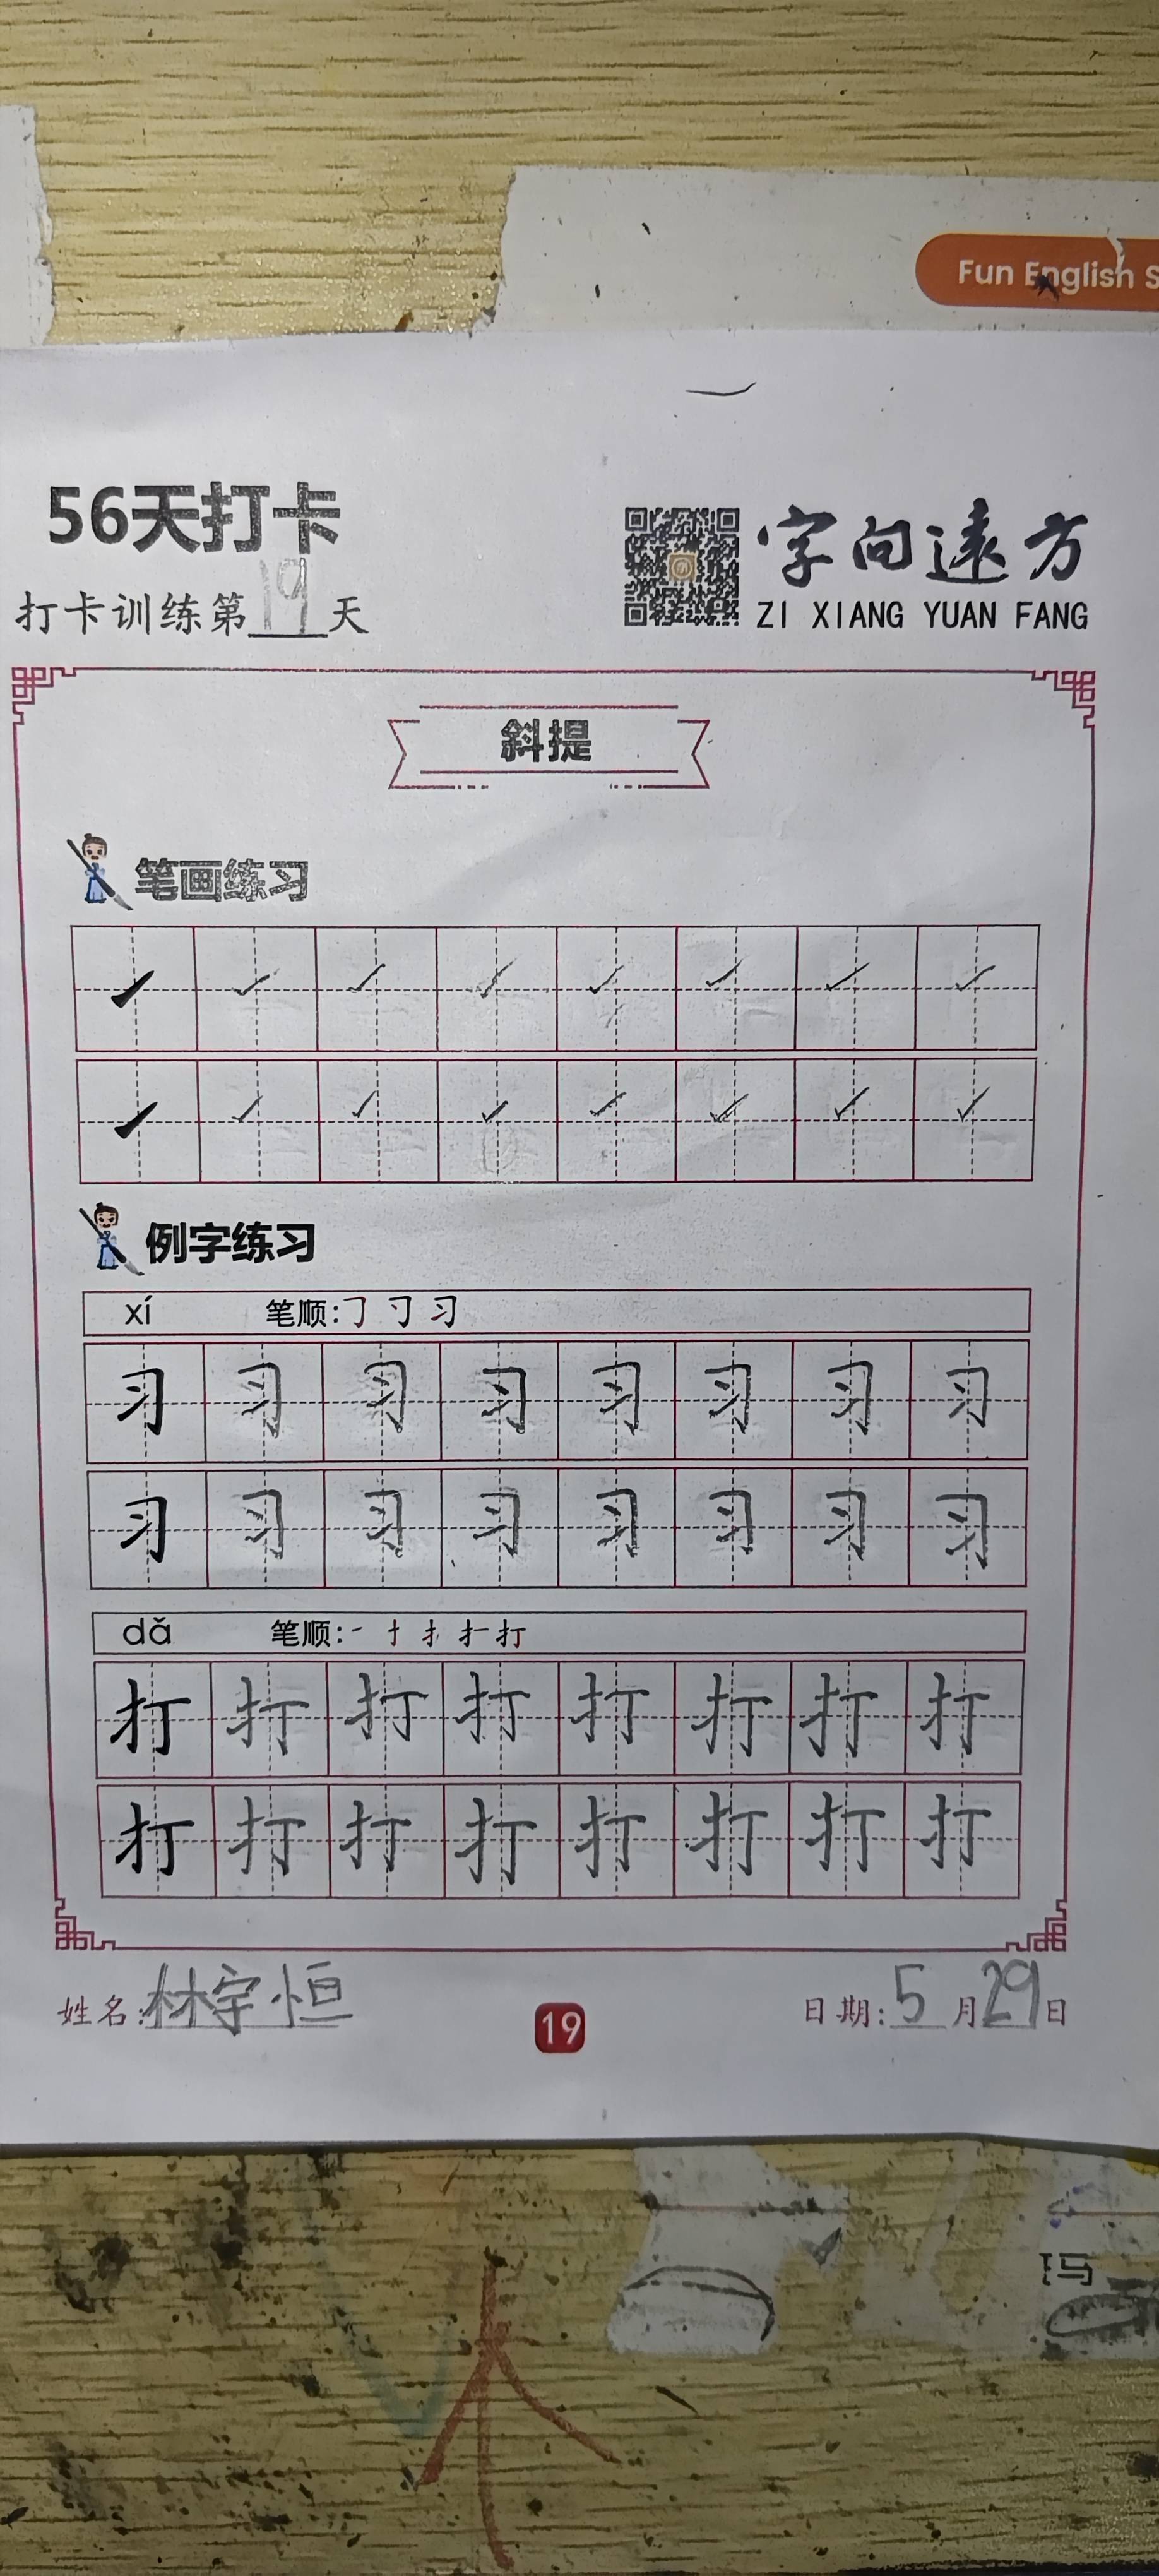 Fun English S
56天打卡
打卡训练第19天
字向远方
ZI XIANG YUAN FANG
斜提
笔画练习
例字练习
xí 笔顺:㇆ 习
习 习 习 习 习 习 习 习
习 习 习 习 习 习 习 习
dǎ 笔顺:一 十 扌 打
打 打 打 打 打 打 打 打
打 打 打 打 打 打 打 打
姓名:林宇恒
19
日期:5月29日
玛